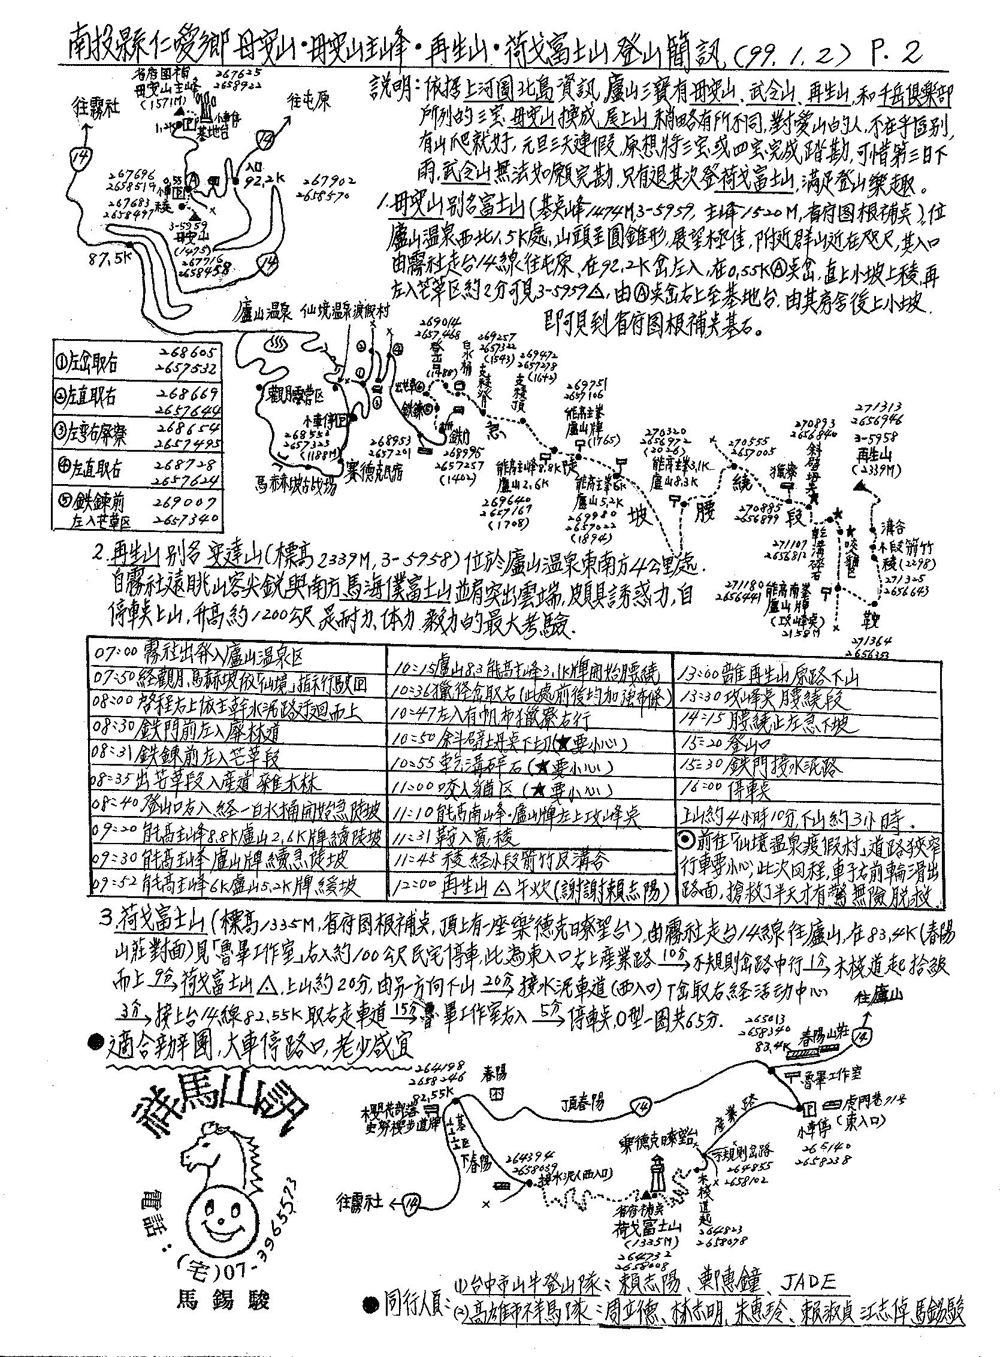 南投縣仁愛鄉母安山·母安山主峰·再生山·荷戈富士山登山簡訊(99.1.2) P.2
省府圖根
母安山主峰
(1571M)
267625
2658922
往霧社
往屯原
1.2K
小車停
基地台
14
267696
2658519
0.55
入口
92.2K
267902
2658570
267683
2658497
3-5959
母安山
(1475)
267716
2658458
87.5K
14
說明:依據上河圖北島資訊,廬山三寶有母安山、武令山、再生山,和千岳俱樂部
所列的三宝,母安山換成尾上山稍略有所不同,對愛山的人,不在乎區別,
有山爬就好,元旦三天連假,原想將三宝或四宝完成踏勘,可惜第三日下
雨,武令山無法如願完勘,只有退其次登荷戈富士山,滿足登山樂趣。
1.母安山別名富士山(基點峰1474M,3-5959,主峰1520M,省府图根補点),位
廬山溫泉西北1.5K處,山頭呈圓錐形,展望極佳,附近群山近在咫尺,其入口
由霧社走台14線往屯原,在92.2K岔左入,在0.55KⒶ点岔,直上小坡上稜,再
左入芒草区約2分可見3-5959△,由Ⓐ点岔右上至基地台,由其房舍後上小坡
即可見到省府图根補点基石。
廬山溫泉 仙境溫泉渡假村
①左岔取右 268605 2657532
②左直取右 268669 2657644
③左彎右屏寮 268654 2657495
④左直取右 268728 2657624
⑤鉄鍊前左入芒草区 269007 2657340
觀月露營区
小車停
268552
2657323
(1188M)
馬赫坡古战場
賽德克民宿
268953
2657201
鉄鍊
鉄門
268995
2657257
(1402)
269014
2657468
登山口
(1488)
白水桶
269257
2657322
(1543)
支稜
269472
2657278
(1642)
支稜頂
急
陡
坡
269751
2657106
能高主峰
廬山牌
(1765)
能高主峰8.8K
廬山2.6K
269640
2657167
(1708)
能高主峰6K
廬山5.2K
269980
2657022
(1894)
270320
2656972
(2026)
能高主峰3.1K
廬山8.3K
270555
2657005
腰
繞
段
獵寮
270893
2656840
斜壁塌点
270885
2656899
乾溝碎石
271107
2656812
271180
2656441
能高南峰
廬山牌
(攻峰点)
2158M
271313
2656946
3-5958
再生山
(2339M)
溝谷
小段箭竹
稜(2298)
271325
2656643
鞍
271364
2.再生山別名安達山(標高2339M,3-5958)位於廬山溫泉東南方4公里處.
自霧社遠眺山容尖銳與南方馬海僕富士山並肩突出雲端,頗具誘惑力,自
停車点上山,升高約1200公尺是耐力、体力、毅力的最大考驗.
07:00 霧社出發入廬山溫泉区
07:50 經觀月、馬赫坡依「仙境」指示行駛回
08:00 啓程右上依主幹水泥路迂迴而上
08:30 鉄門前左入廢林道
08:31 鉄鍊前左入芒草段
08:35 出芒草段入産道雜木林
08:40 登山口右入經一白水桶開始急陡坡
09:20 能高主峰8.8K廬山2.6K牌續陡坡
09:30 能高主峰廬山牌續急陡坡
09:52 能高主峰6K廬山5.2K牌緩坡
10:15 廬山8.3能高主峰3.1K牌開始腰繞
10:36 獵徑岔取右(此處前後均加強布條)
10:47 左入有帆布獵寮右行
10:50 斜壁塌点下切(★要小心)
10:55 乾溝碎石(★要小心)
11:00 咬人貓区(★要小心)
11:10 能高南山峰·廬山牌左上攻峰点
11:31 鞍入寬稜
11:45 稜經小段箭竹及溝谷
12:00 再生山△午炊(謝謝賴志陽)
13:00 離再生山原路下山
13:30 攻峰点腰繞段
14:15 腰繞止左急下坡
15:20 登山口
15:30 鉄門接水泥路
16:00 停車点
上山約4小時10分,下山約3小時.
⊙前往「仙境溫泉渡假村」道路狹窄
行車要小心;此次回程,車子右前輪滑出
路面,搶救了半天才有驚無險脫救.
3.荷戈富士山(標高1335M,省府图根補点,頂上有一座樂德克瞭望台),由霧社走台14線往廬山,在83.4K(春陽
山莊對面)見「魯畢工作室」右入約100公尺民宅停車,此為東入口右上産業路 10分→不規則岔路中行 1分→木棧道起拾級
而上 9分→荷戈富士山△,上山約20分,由另一方向下山 20分→接水泥車道(西入口)丁岔取右經活動中心
3分→接上台14線82.55K取右走車道 15分→魯畢工作室右入 5分→停車点,O型一圈共65分.
●適合勁辛團,大車停路口,老少咸宜
祥馬山訊
電話:(宅)07-3965523
馬錫駿
往廬山
265013
2658340
83.4K
春陽山莊
14
魯畢工作室
虎門巷71号
小車停
(東入口)
265140
2658238
264198
2658246
82.55K
春陽
櫻花部落
史努櫻步道牌
頂春陽
14
産業路
下春陽
264394
2658059
接水泥(西入口)
往霧社
14
樂德克瞭望台
不規則岔路
264855
2658102
木棧道起
264823
2658098
省府補点
荷戈富士山
(1335M)
264732
2658008
●同行人員:(1)台中市山牛登山隊:賴志陽、鄭惠鐘、JADE
(2)高雄市祥馬隊:周立德、林志明、朱惠玲、賴淑貞、江志倬、馬錫駿